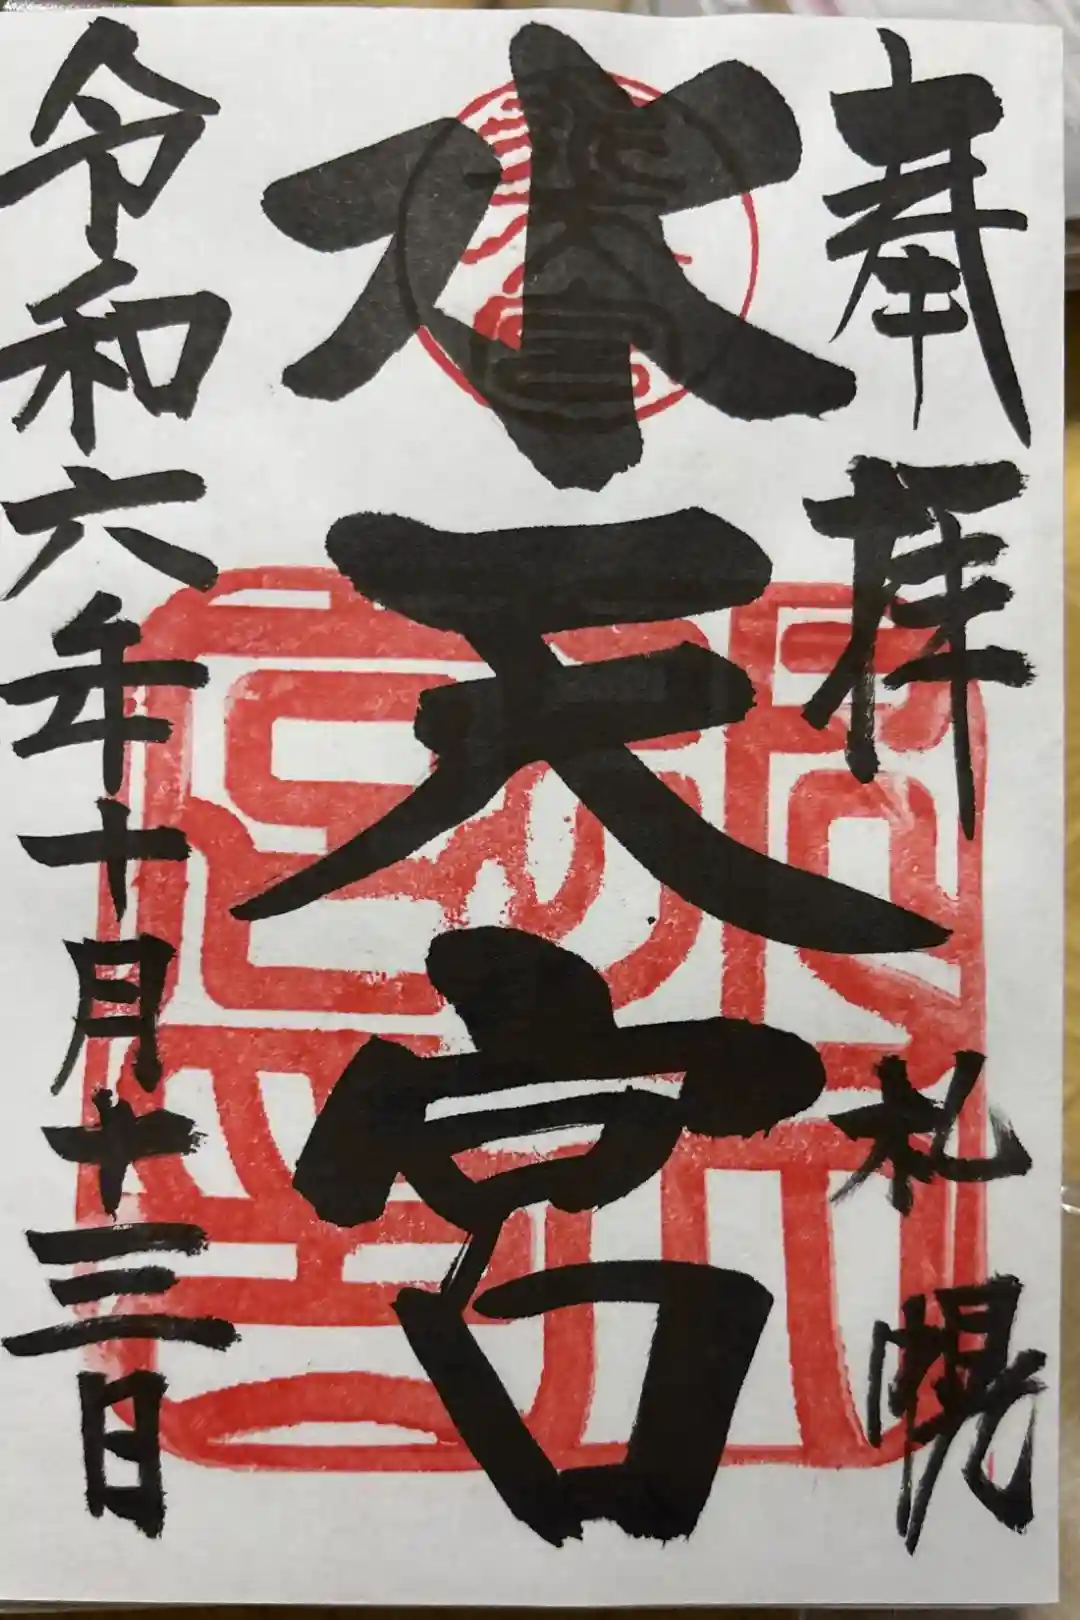 奉拝 札幌
水天宮
令和六年十月十三日